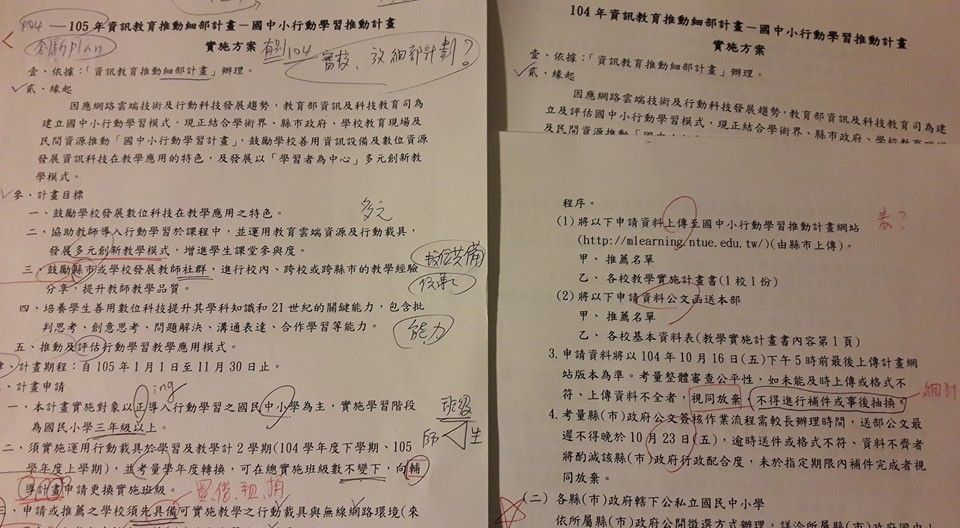 104
105年資訊教育推動細部計畫－國中小行動學習推動計畫
實施方案
壹、依據：「資訊教育推動細部計畫」辦理。
貳、緣起
因應網路雲端技術及行動科技發展趨勢，教育部資訊及科技教育司為
建立國中小行動學習模式，現正結合學術界、縣市政府、學校教育現場及
民間資源推動「國中小行動學習計畫」，鼓勵學校善用資訊設備及數位資源
發展資訊科技在教學應用的特色，及發展以「學習者為中心」多元創新教
學模式。
參、計畫目標
一、鼓勵學校發展數位科技在教學應用之特色。
多元
二、協助教師導入行動學習於課程中，並運用教育雲端資源及行動載具，
發展多元創新教學模式，增進學生課堂參與度。
三、鼓勵縣市或學校發展教師社群，進行校內、跨校或跨縣市的教學經驗
分享，提升教師教學品質。
四、培養學生善用數位科技提升其學科知識和21世紀的關鍵能力，包含批
判思考、創意思考、問題解決、溝通表達、合作學習等能力。
能力
五、推動及評估行動學習教學應用模式。
、計畫期程：自105年1月1日至11月30日止。
、計畫申請
ing
一、本計畫實施對象以正導入行動學習之國民中小學為主，實施學習階段
為國民小學三年級以上。
班級
師
生
二、須實施運用行動載具於學習及教學計2學期(104學年度下學期、105
學年度上學期)，並考量學年度轉換，可在總實施班級數不變下，向輔
導計畫申請更換實施班級。
買、借、租、捐
三、申請或推薦之學校須先具備可實施教學之行動載具與無線網路環境(來
104年資訊教育推動細部計畫－國中小行動學習推動計畫
實施方案
壹、依據：「資訊教育推動細部計畫」辦理。
貳、緣起
因應網路雲端技術及行動科技發展趨勢，教育部資訊及科技教育司為建
立及評估國中小行動學習模式，現正結合學術界、縣市政府、學校教育現場
程序。
(1)將以下申請資料上傳至國中小行動學習推動計畫網站
表？
(http://mlearning.ntue.edu.tw/)(由縣市上傳)。
甲、推薦名單
乙、各校教學實施計畫書(1校1份)
(2)將以下申請資料公文函送本部
甲、推薦名單
乙、各校基本資料表(教學實施計畫書內容第1頁)
3.申請資料將以104年10月16日(五)下午5時前最後上傳計畫網
站版本為準。考量整體審查公平性，如未能及時上傳或格式不
符、上傳資料不全者，視同放棄，不得進行補件或事後抽換。
4.考量縣(市)政府公文簽核作業流程需較長辦理時間，送部公文最
遲不得晚於10月23日(五)，逾時送件或格式不符、資料不齊者
將酌減該縣(市)政府行政配合度，未於指定期限內補件完成者視
同放棄。
(二)各縣(市)政府轄下公私立國民中小學